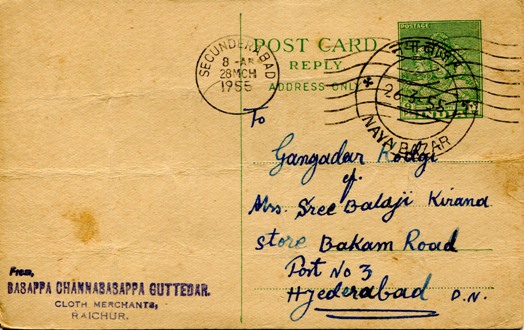 POST CARD
REPLY
ADDRESS ONLY
POSTAGE
SECUNDERABAD
8-AM
28 MCH
1955
26.3.55
NAYA BAZAR
To
Gangadar Rodgi
Mrs. Sree Baldji Kirand
Store Bakam Road
Port No 3
Hyederabad D.N.
From,
BASAPPA CHANNABASAPPA GUTTEDAR.
CLOTH MERCHANTS,
RAICHUR.